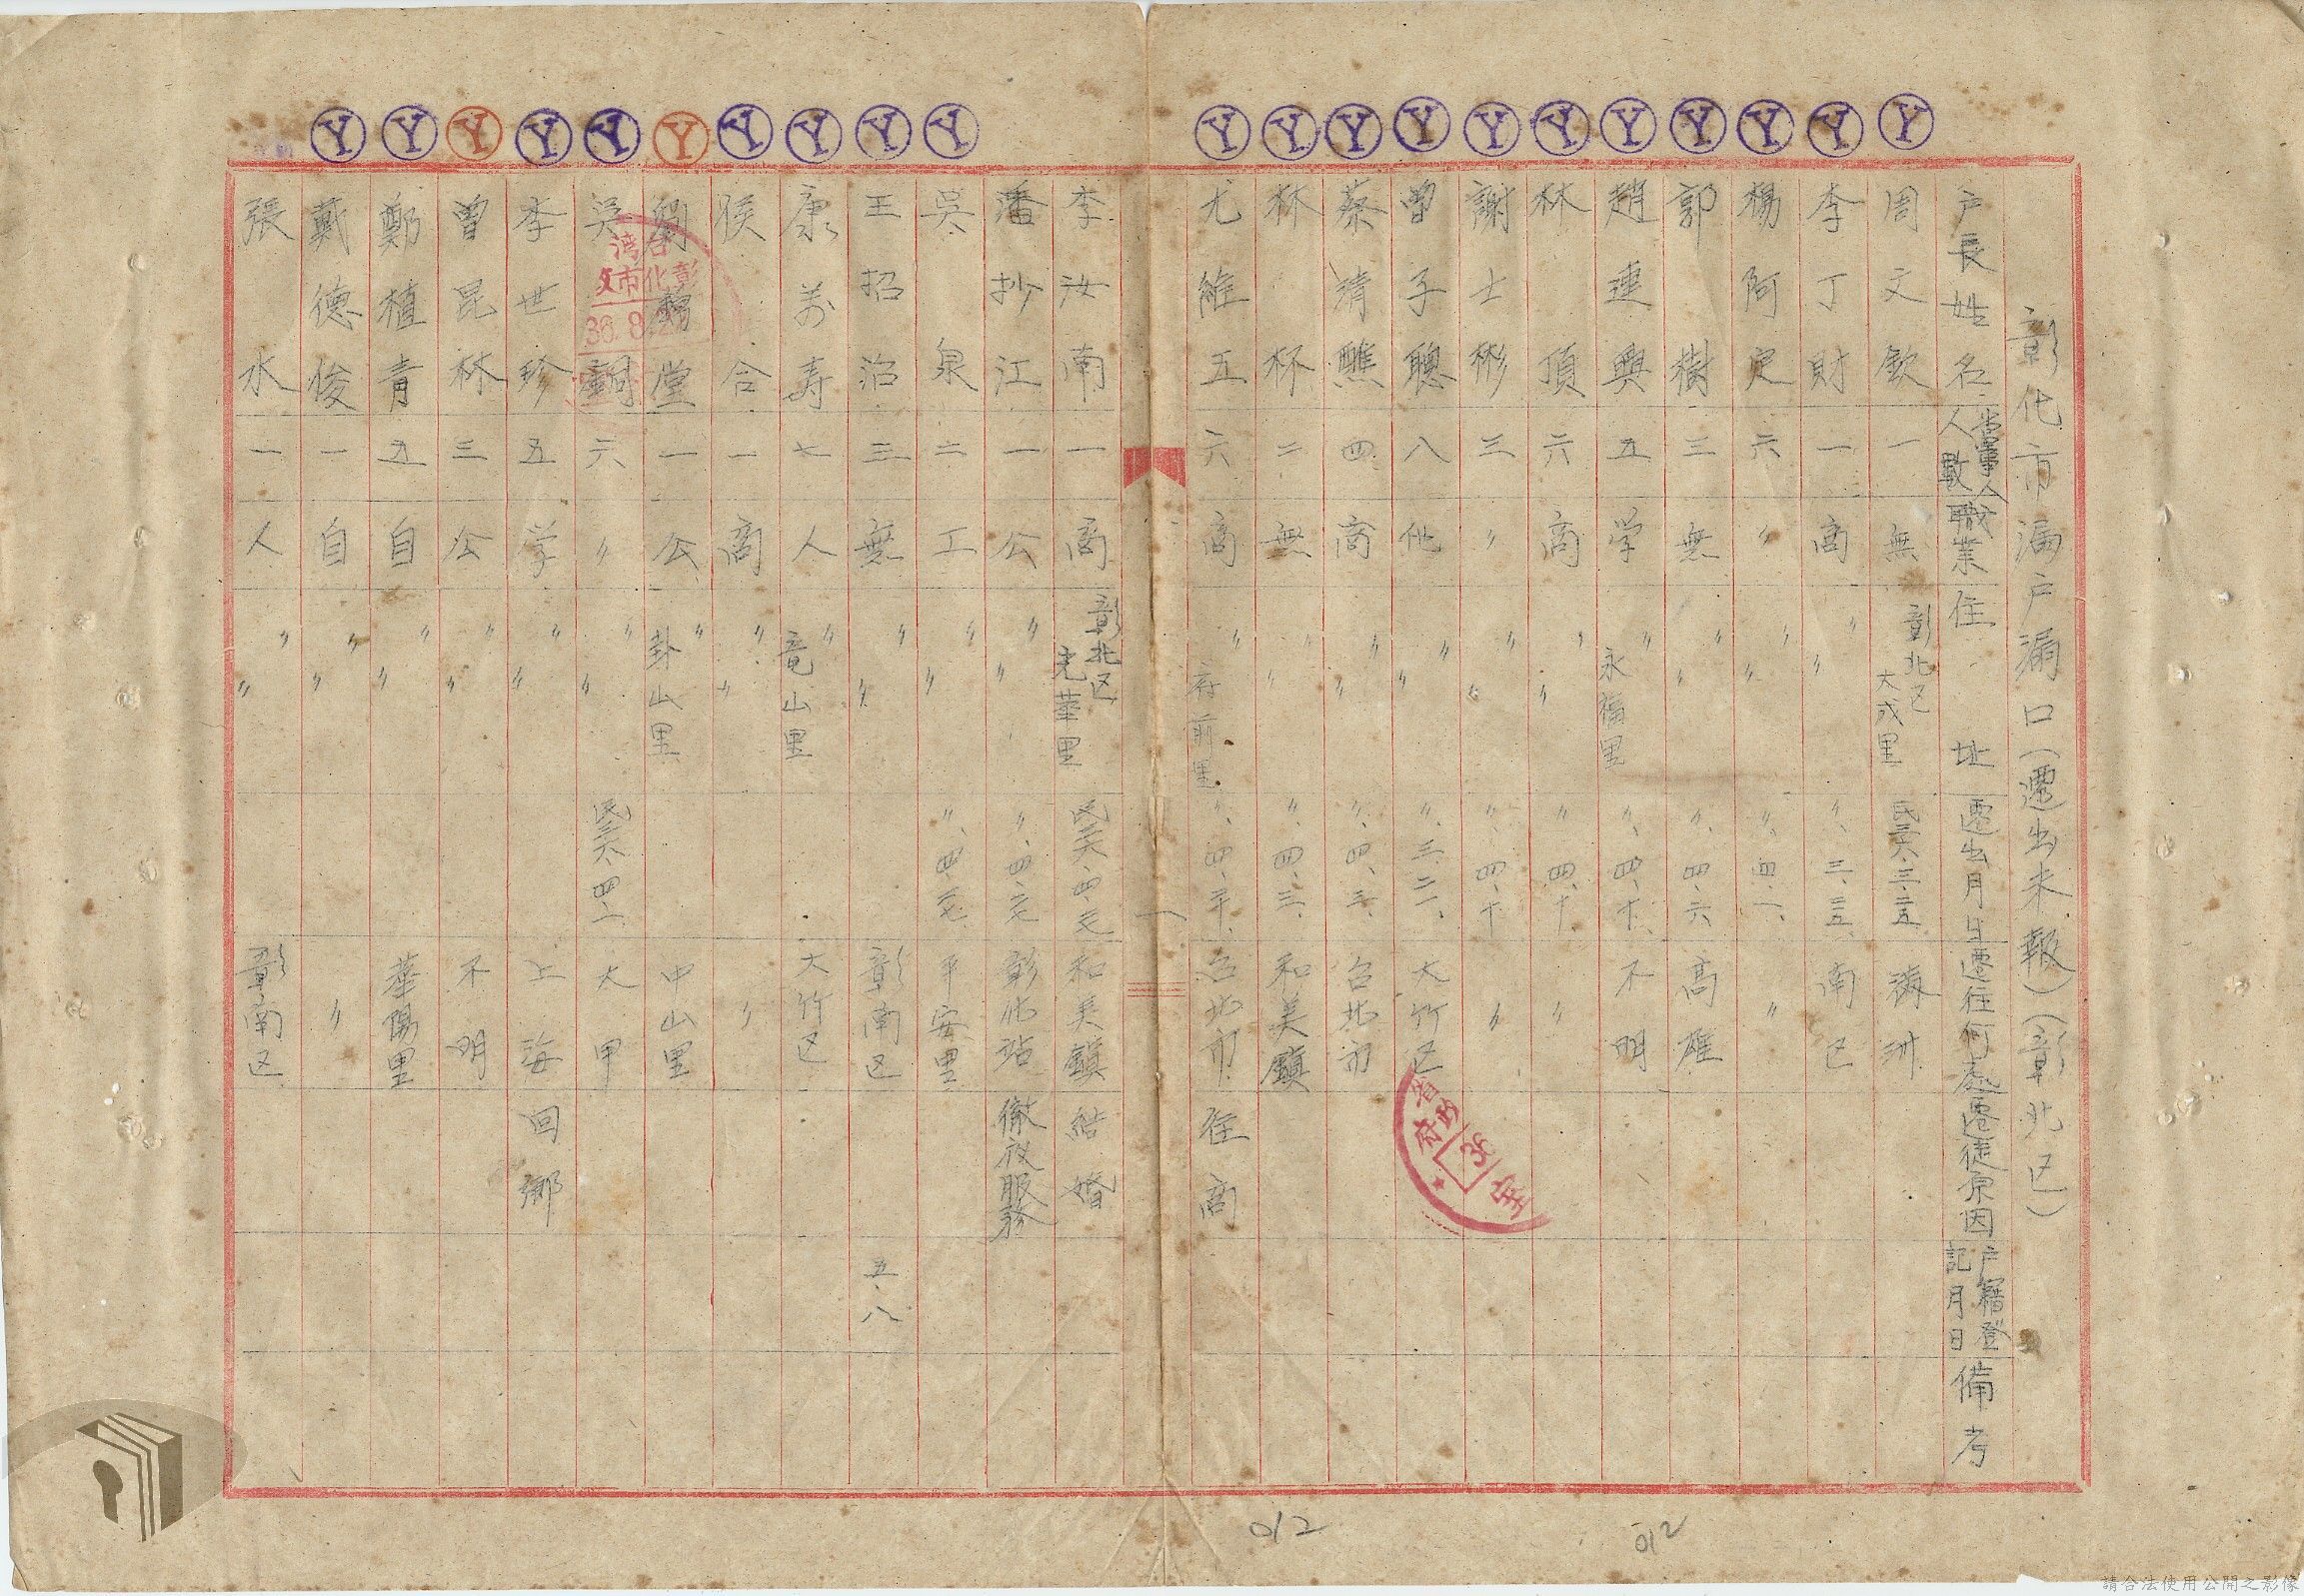 彰化市漏戸漏口(遷出未報)(彰北区)
戸長姓名 當事人人數 職業 住址 遷出月日 遷往何處 遷徒原因 戸籍登記月日 備考
周文欽 一 無 彰北区大成里 民三六、三、二五 满洲
李丁財 一 商 〃 〃 〃、三、三五、南区
楊阿定 六 〃 〃 〃 〃、四、一、〃
郭樹 三 無 〃 〃 〃、四、六 高雄
趙連興 五 学 〃永福里 〃、四、十、不明
林頂 六 商 〃 〃 〃四、十 〃
謝士彬 三 〃 〃 〃 〃、四、十 〃
曽子聰 八 他 〃 〃 〃、三、二一、大竹区
蔡清醮 四 商 〃 〃 〃、四、三、台北市
林杯 二 無 〃 〃 〃、四、三、和美鎮
尤維五 六 商 〃府前里 〃、四、二十、台北市 往商
李汝南 一 商 彰北区光華里 民三六、四、 和美鎮 結婚
潘抄江 一 公 〃 〃 〃、四、 彰化站 徹夜服務
吳泉 二 工 〃 〃 〃、四、 平安里
王招治 三 無 〃 〃 彰南区 五、八
康萬寿 七 人 〃竜山里 大竹区
侯合 一 商 〃 〃 〃
堂 一 公 〃卦山里 中山里
吳銅 六 〃 〃 〃 民三六、四、一、大甲
李世珍 五 学 〃 〃 上海 回鄉
曽昆林 三 公 〃 〃 不明
鄭植青 五 自 〃 〃 華陽里
戴德俊 一 自 〃 〃 〃
張水 一 人 〃 〃 彰南区
台湾
彰化市政
36.8
省政府
36
一
012
012
請合法使用公開之影像